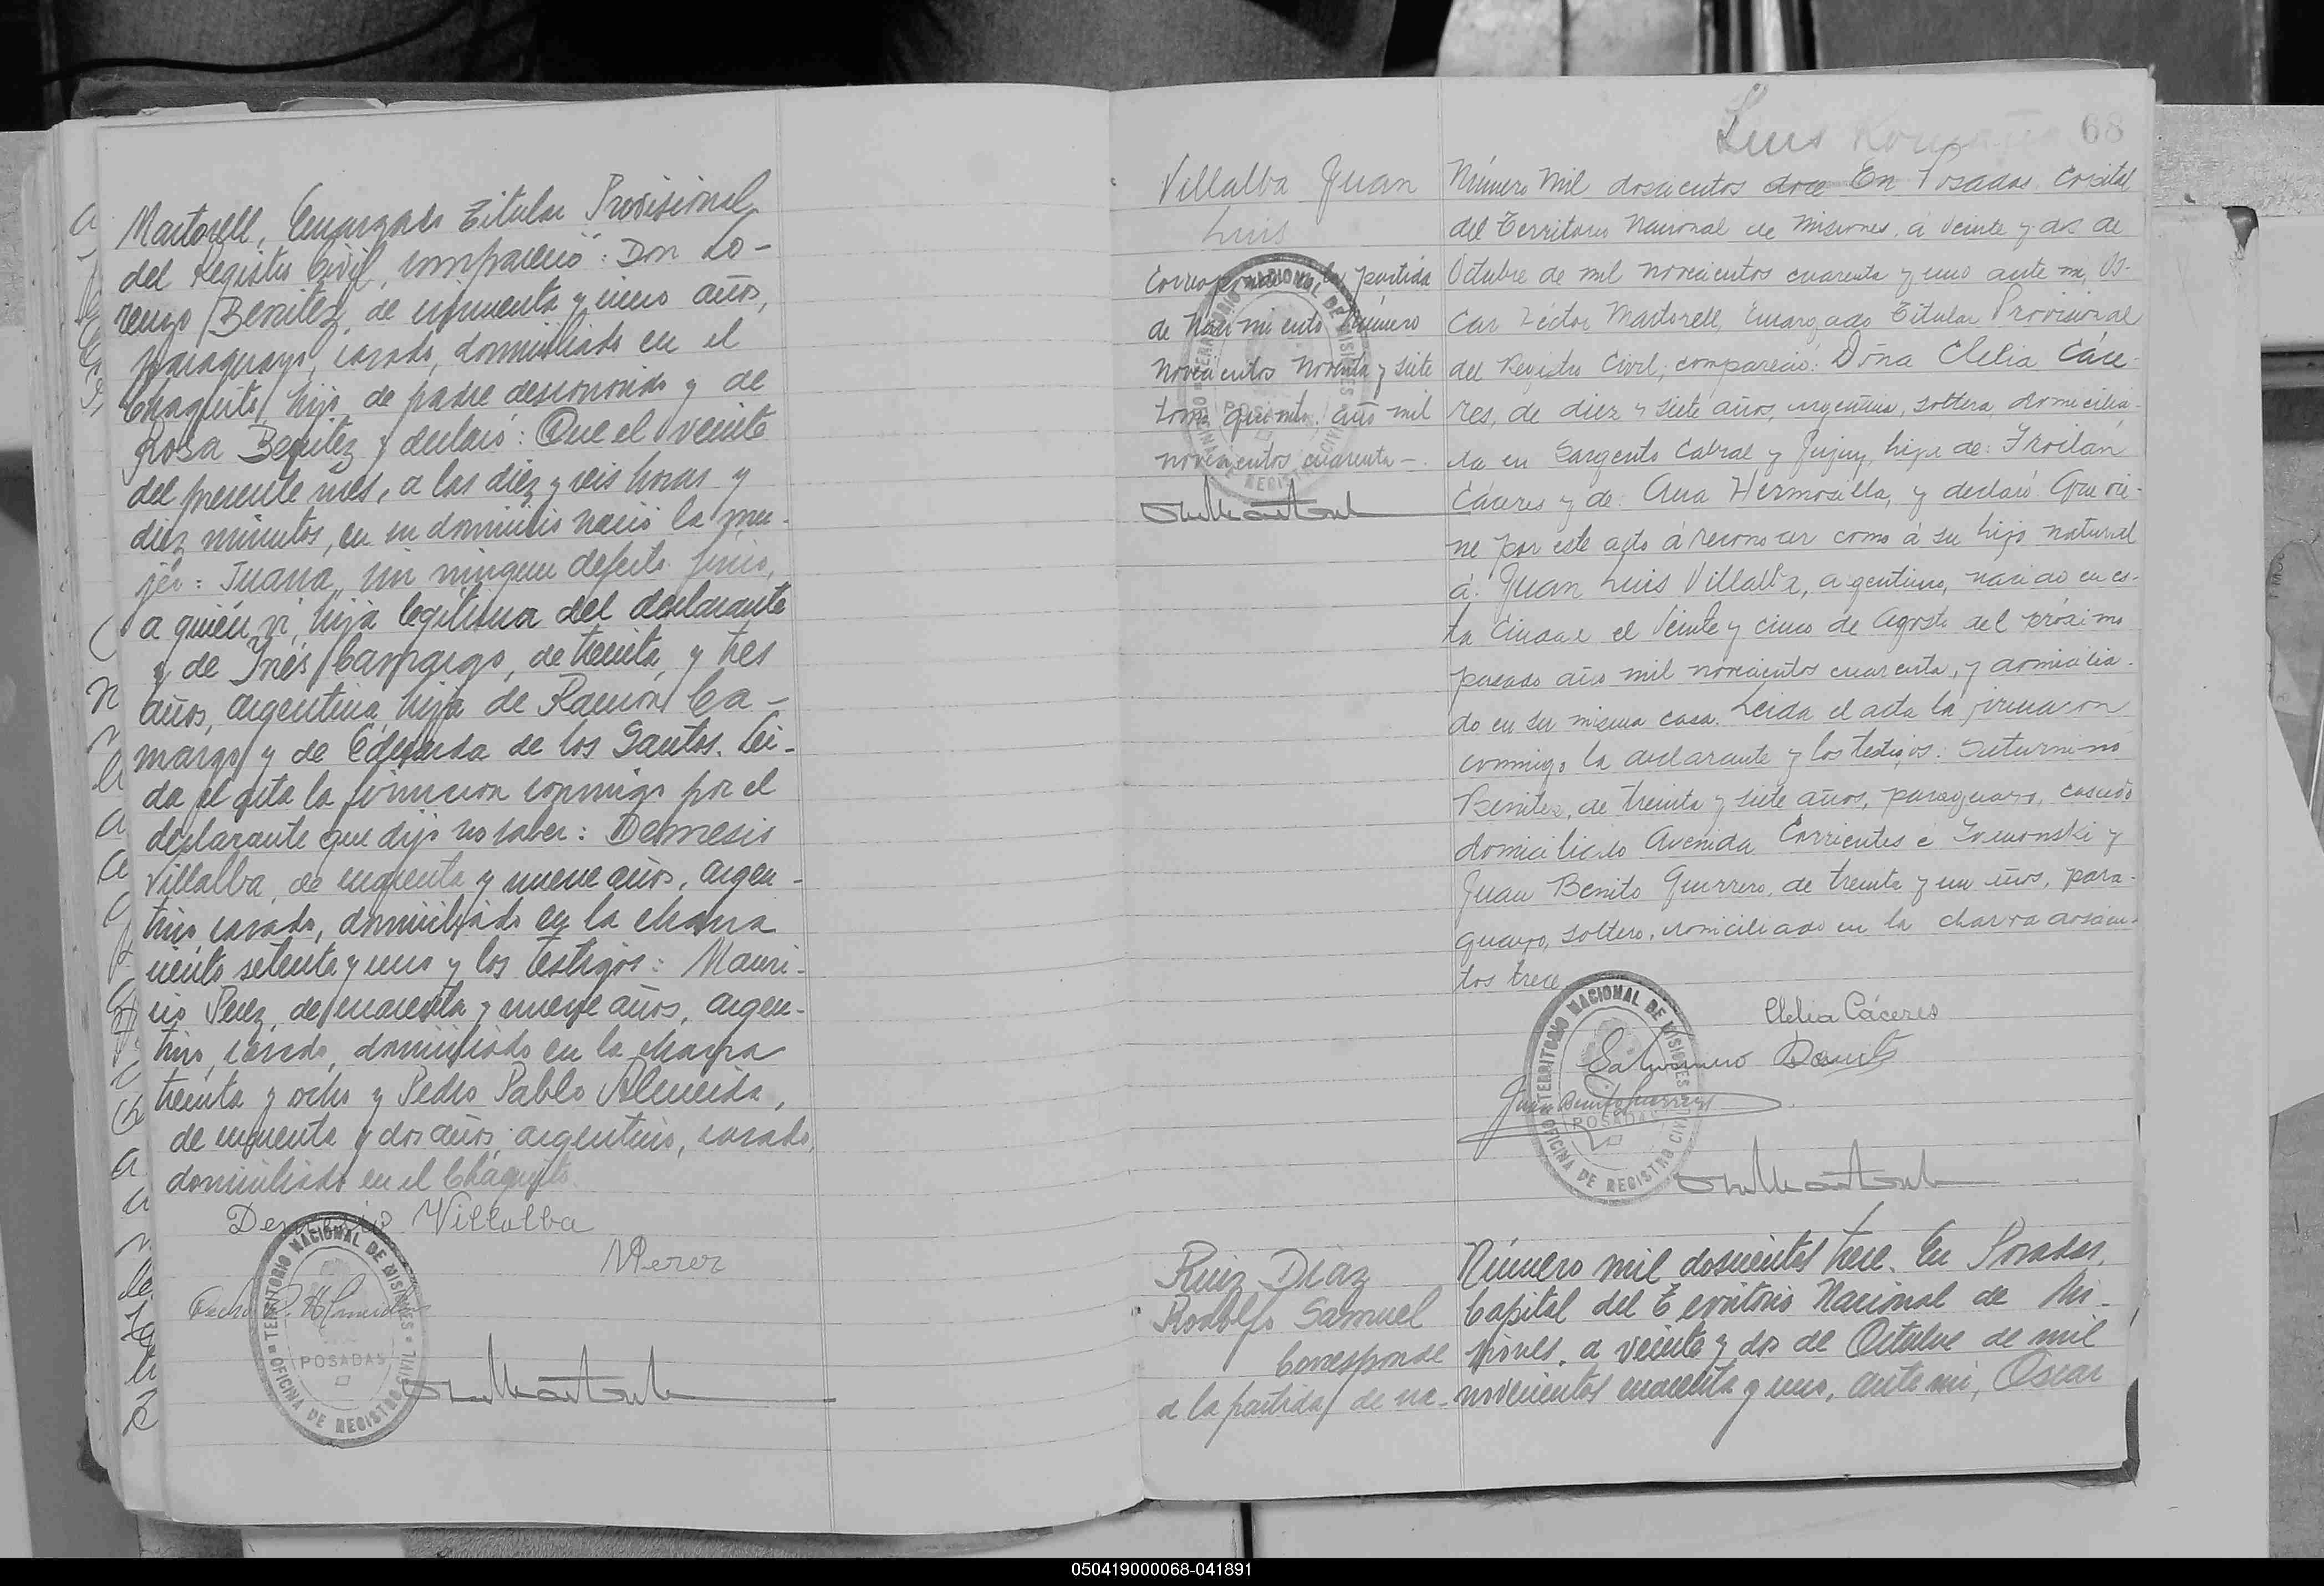 Martorell, Encargado Titular Provisional
del Registro Civil, compareció: Don Lo-
renzo Benitez, de cincuenta y cinco años,
paraguayo, casado, domiciliado en el
Chaquito, hijo de padre desconocido y de
Rosa Benitez y declaró: Que el veinte
del presente mes, a las diez y seis horas y
diez minutos, en su domicilio nació la mu-
jer: Juana, sin ningun defecto físico,
a quién vi, hija legítima del declarante
y de Inés Camargo, de treinta y tres
años, argentina, hija de Ramón Ca-
margo y de Eduarda de los Santos. Leí-
da el acta la firmaron conmigo por el
declarante que dijo no saber: Demesio
Villalba, de cincuenta y nueve años, argen-
tino, casado, domiciliado en la chacra
ciento setenta y uno y los testigos: Mauri-
cio Perez, de cuarenta y nueve años, argen-
tino, casado, domiciliado en la chacra
treinta y ocho y Pedro Pablo Almeida,
de cincuenta y dos años, argentino, casado,
domiciliado en el Chaquito.
Villalba
MPerez
TERRITORIO NACIONAL DE MISIONES
POSADAS
OFICINA DE REGISTRO CIVIL
Luis
68
Villalba Juan
Luis
Corresponde a la partida
de Nacimiento número
novecientos noventa y siete
tomo quinto año mil
novecientos cuarenta -.
TERRITORIO NACIONAL DE MISIONES
POSADAS
OFICINA DE REGISTRO CIVIL
Número Mil doscientos doce En Posadas, Capital
del Territorio Nacional de Misiones, á veinte y dos de
Octubre de mil novecientos cuarenta y uno ante mi, Os-
car Héctor Martorell, Encargado Titular Provisional
del Registro Civil, compareció: Doña Clelia Cáce-
res, de diez y siete años, argentina, soltera, domicilia-
da en Sargento Cabral y Jujuy, hija de: Froilán
Cáceres y de: Ana Hermosilla, y declaró Que vie-
ne por este acto á reconocer como á su hijo natural
á: Juan Luis Villalba, argentino, nacido en es-
ta Ciudad el veinte y cinco de Agosto del próximo
pasado año mil novecientos cuarenta, y domicilia-
do en su misma casa. Leida el acta la firmaron
conmigo la declarante y los testigos: Saturnino
Benitez, de treinta y siete años, paraguayo, casado
domiciliado Avenida Corrientes é y
Juan Benito Guerrero, de treinta y un años, para-
guayo, soltero, domiciliado en la chacra doscien-
tos trece.
Clelia Cáceres
Saturnino Benitz
Juan Benito Guerrero
TERRITORIO NACIONAL DE MISIONES
POSADAS
OFICINA DE REGISTRO CIVIL
Ruiz Díaz
Rodolfo Samuel
Corresponde
a la partida de na-
Número mil doscientos trece. En Posadas,
Capital del Territorio Nacional de Mi-
siones, a veinte y dos de Octubre de mil
novecientos cuarenta y uno, ante mi, Oscar
050419000068-041891